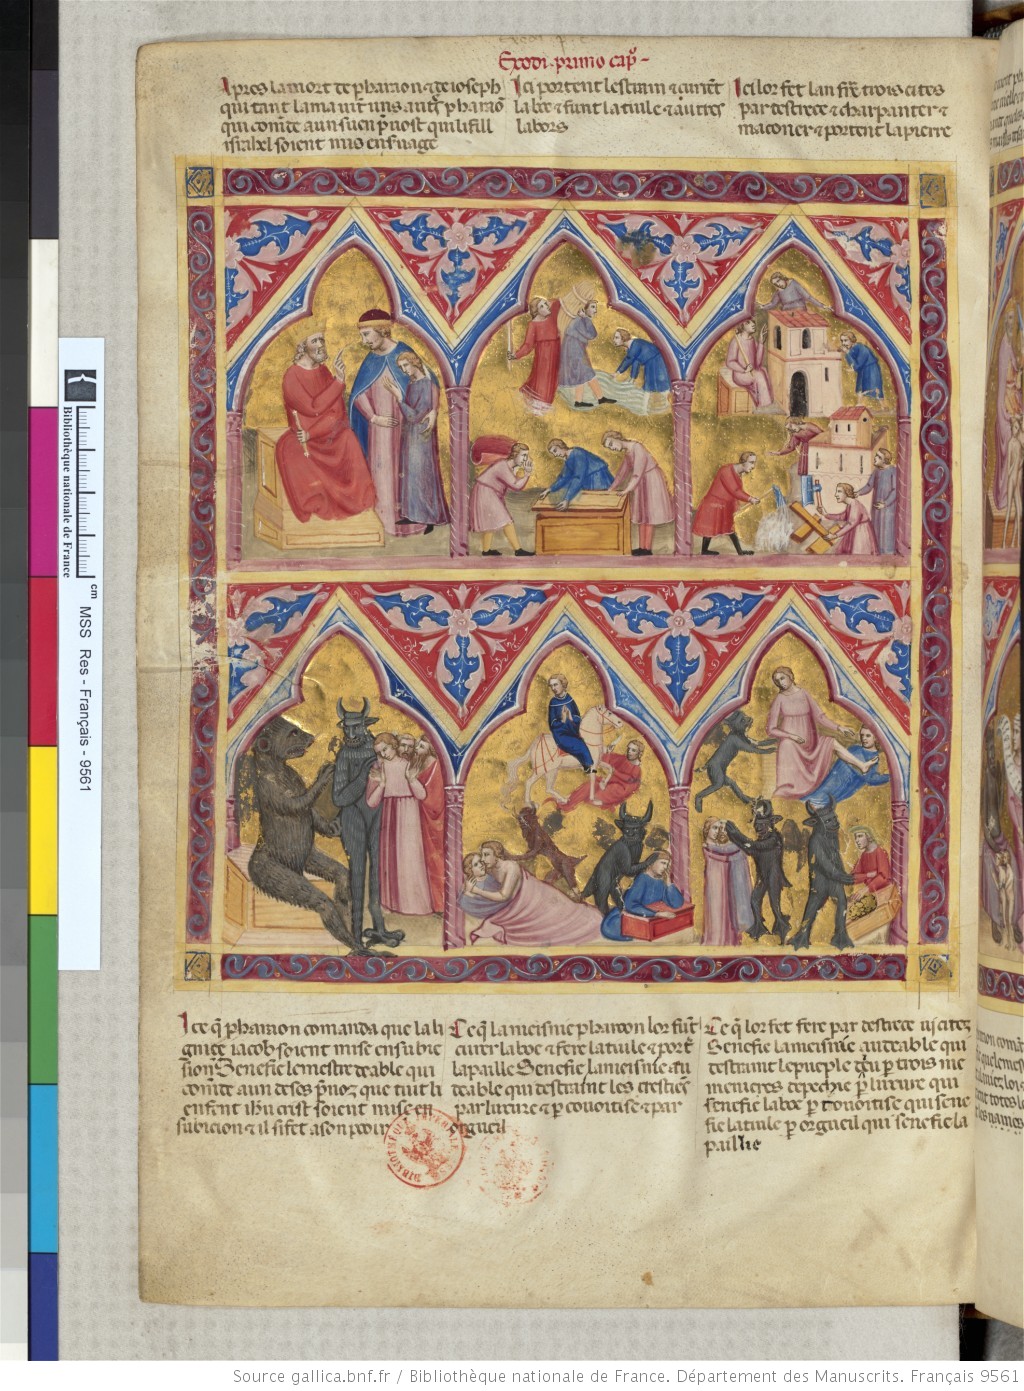 Exodi · primo cap̃o ~
Apres la mort de pharaon ⁊ de ioseph
qui tant lamauit uns aut̃ pharaõ
qui com̃de a un suen p̃uost qui li fill
israhel soient mis en suage
Ici portent lestrain ⁊ curent
la boe ⁊ funt la tiule ⁊ autres
labors
Ici lor fet lan frẽ trois cites
par destrece ⁊ charpanter ⁊
maconer ⁊ portent la pierre
Ice q̃ pharaon comanda que la li
gniee iacob soient mise en subie
sion Senefie le mestre deable qui
com̃de a un de ses p̃uoz que tuit li
enfent ihu crist soient mise en
subicion ⁊ il si fet a son pooir
Ce q̃ la meisnie pharaon lor funt
curer la boe ⁊ fere la tiule ⁊ port̃
la paille Senefie la meisnie au
deable qui destraint les crestiẽs
par luxure ⁊ p couoitise ⁊ par
orgueil
Ce q̃ lor fet fere par destrece iij citez
Senefie la meisnie au deable qui
destraint le pueple deu p trois me
menieres de pechie p luxure qui
senefie la boe p couoitise qui sene
fie la tiule p orgueil qui senefie la
paillie
cm
Bibliothèque nationale de France
MSS Res - Français - 9561
Source gallica.bnf.fr / Bibliothèque nationale de France. Département des Manuscrits. Français 9561